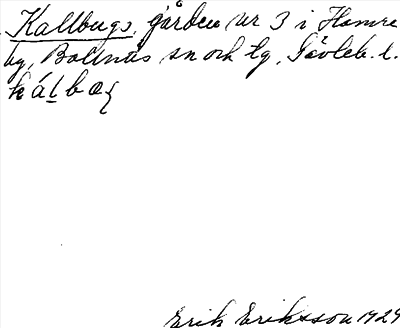 Kallbugs, gården nr 3 i Hamre
by, Bollnäs sn och tg, Gävleb. l.
kálbæ
Erik Eriksson 1929